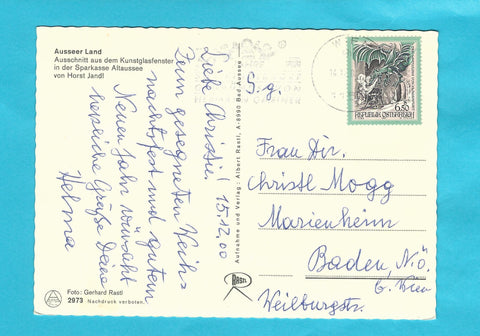 Ausseer Land
Ausschnitt aus dem Kunstglasfenster
in der Sparkasse Altaussee
von Horst Jandl
Liebe Christl! 15.12.00
Zum gesegneten Weih-
nachtsfest und gutem
Neuen Jahr wünscht
herzliche Grüße Deine
Helma
Foto: Gerhard Rastl
2973 Nachdruck verboten.
Aufnahme und Verlag: Albert Rastl, A-8990 Bad Aussee
RASTL
6.50
REPUBLIK ÖSTERREICH
S.g.
Frau Dir.
Christl Mogg
Marienheim
Baden, NÖ.
b. Wien
Weilburgstr.